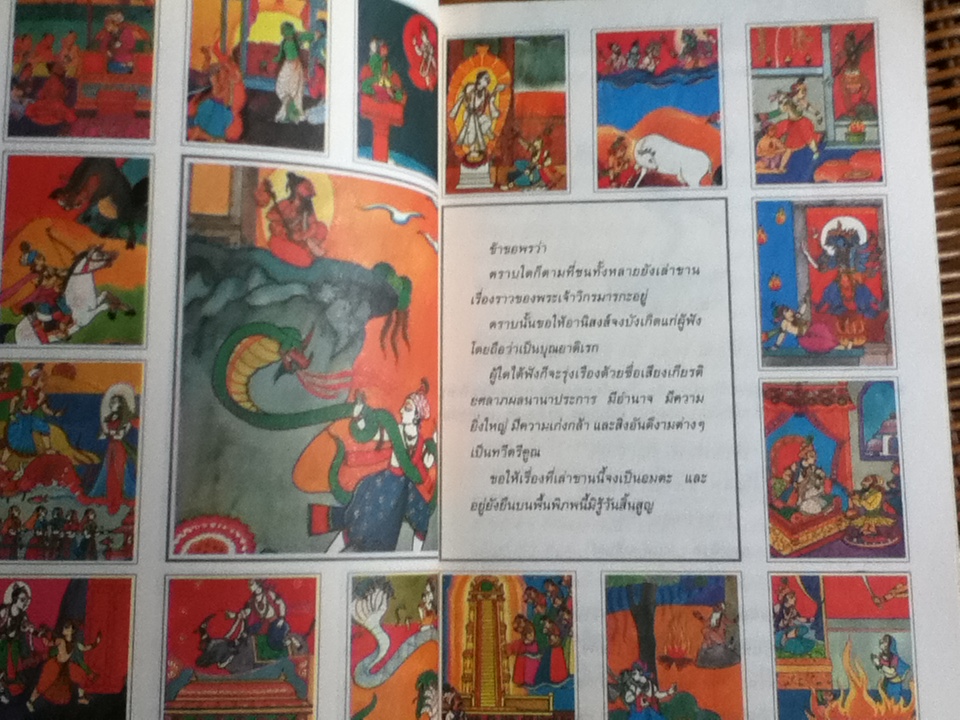 ข้าขอพรว่า
ตราบใดก็ตามที่ชนทั้งหลายยังเล่าขาน
เรื่องราวของพระเจ้าวิกรมารกะอยู่
ตราบนั้นขอให้อานิสงส์จงบังเกิดแก่ผู้ฟัง
โดยถือว่าเป็นบุณยาดิเรก
ผู้ใดได้ฟังก็จะรุ่งเรืองด้วยชื่อเสียงเกียรติ
ยศลาภผลนานาประการ มีอำนาจ มีความ
ยิ่งใหญ่ มีความเก่งกล้า และสิ่งอันดีงามต่างๆ
เป็นทวีตรีคูณ
ขอให้เรื่องที่เล่าขานนี้จงเป็นอมตะ และ
อยู่ยั่งยืนบนพื้นพิภพนี้มิรู้วันสิ้นสูญ